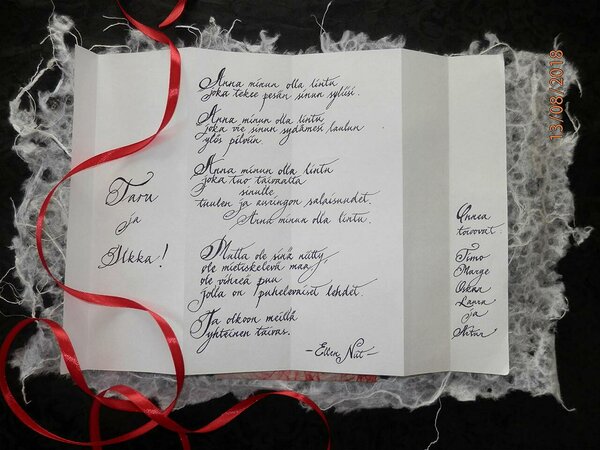 Taru
ja
Ukka!
Anna minun olla lintu
joka tekee pesän sinun syliisi.
Anna minun olla lintu,
joka vie sinun sydämesi laulun
ylös pilviin.
Anna minun olla lintu
joka tuo taivaalta
sinulle
tuulen ja auringon salaisuudet.
Anna minun olla lintu.
Mutta ole sinä niitty,
ole mietiskelevä maa,
ole vihreä puu
jolla on puheliaiset lehdet.
Ja olkoon meillä
yhteinen taivas.
-Ellen Niit-
Onnea
toivovat
Timo
Marge
Oskar
Laura
ja
Artur
13/08/2018